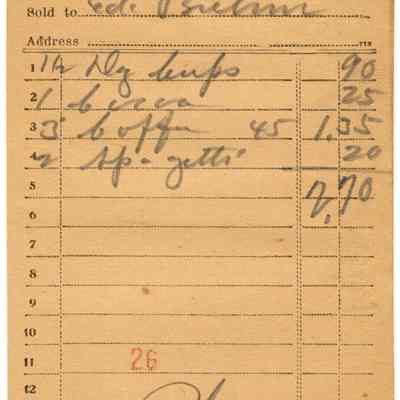 Sold to Ed.
Address
1 1½ Dz cups 90
2 1 cocoa 25
3 3 coffee 45 1,35
4 2 Spagetti 20
5 2,70
6
7
8
9
10
11 26
12